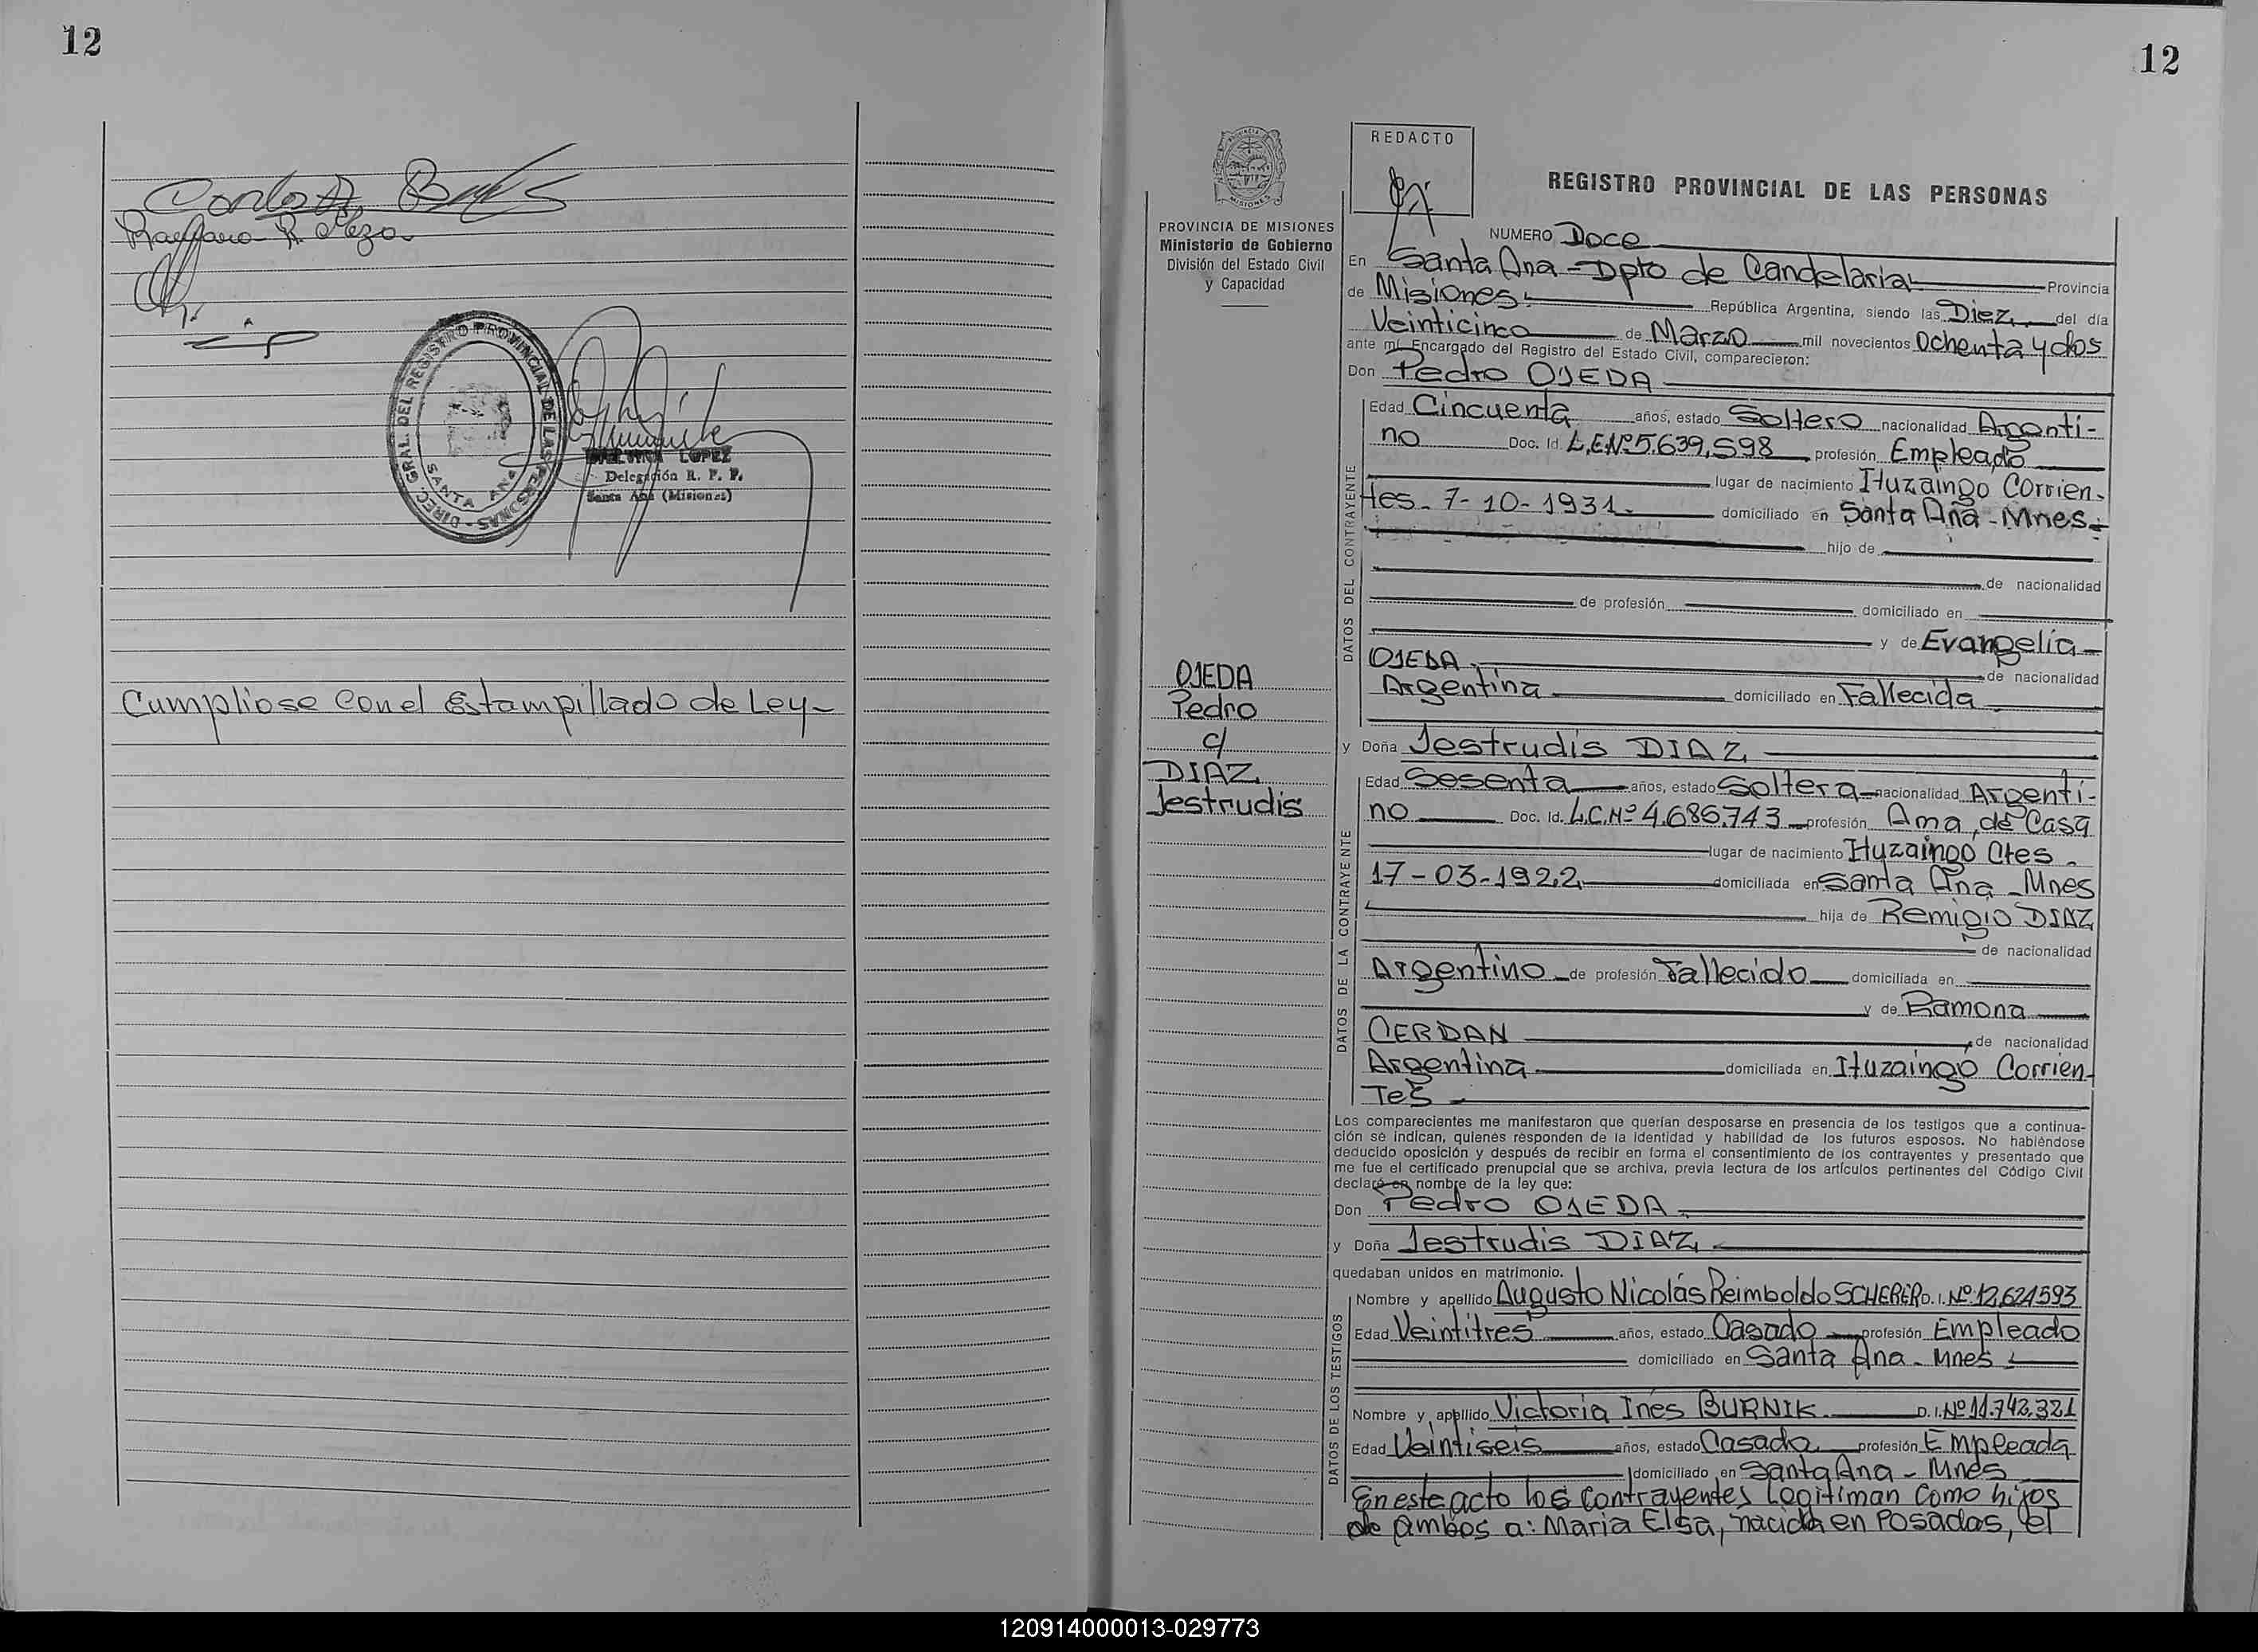 12
Cumpliose con el Estampillado de Ley-
DIREC. GRAL. DEL REGISTRO PROVINCIAL DE LAS PERSONAS -
SANTA ANA
LOPEZ
Delegación R. P. P.
Santa Ana (Misiones)
12
PROVINCIA DE MISIONES
Ministerio de Gobierno
División del Estado Civil
y Capacidad
OJEDA
Pedro
c/
DIAZ
Jestrudis
REDACTO
REGISTRO PROVINCIAL DE LAS PERSONAS
NUMERO Doce
En Santa Ana - Dpto de Candelaria Provincia
de Misiones República Argentina, siendo las Diez del día
Veinticinco de Marzo mil novecientos Ochenta y dos
ante mí Encargado del Registro del Estado Civil, comparecieron:
Don Pedro OJEDA
DATOS DEL CONTRAYENTE
Edad Cincuenta años, estado Soltero nacionalidad Argenti-
no Doc. Id. L.E.Nº 5.639.598 profesión Empleado
lugar de nacimiento Ituzaingo Corrien-
tes. 7-10-1931. domiciliado en Santa Ana - Mnes-
hijo de
de nacionalidad
de profesión domiciliado en
y de Evangelia
OJEDA de nacionalidad
Argentina domiciliado en Fallecida
y Doña Jestrudis DIAZ
DATOS DE LA CONTRAYENTE
Edad Sesenta años, estado Soltera nacionalidad Argenti-
no Doc. Id. L.C.Nº 4.686.743 profesión Ama de Casa
lugar de nacimiento Ituzaingo Ctes.
17-03-1922 domiciliada en Santa Ana - Mnes
hija de Remigio DIAZ
de nacionalidad
Argentino de profesión Fallecido domiciliada en
y de Ramona
CERDAN de nacionalidad
Argentina domiciliada en Ituzaingó Corrien-
Tes
Los comparecientes me manifestaron que querían desposarse en presencia de los testigos que a continua-
ción se indican, quienes responden de la identidad y habilidad de los futuros esposos. No habiéndose
deducido oposición y después de recibir en forma el consentimiento de los contrayentes y presentado que
me fue el certificado prenupcial que se archiva, previa lectura de los artículos pertinentes del Código Civil
declaré en nombre de la ley que:
Don Pedro OJEDA
y Doña Jestrudis DIAZ
quedaban unidos en matrimonio.
DATOS DE LOS TESTIGOS
Nombre y apellido Augusto Nicolás Reimboldo SCHERER D. I. Nº 12.621593
Edad Veintitres años, estado Casado profesión Empleado
domiciliado en Santa Ana - Mnes
Nombre y apellido Victoria Inés BURNIK D. I. Nº 11.742.321
Edad Veintiseis años, estado Casada profesión Empleada
domiciliado en Santa Ana - Mnes
En este acto los contrayentes Legitiman como hijos
de ambos a: Maria Elsa, nacida en Posadas, el
120914000013-029773